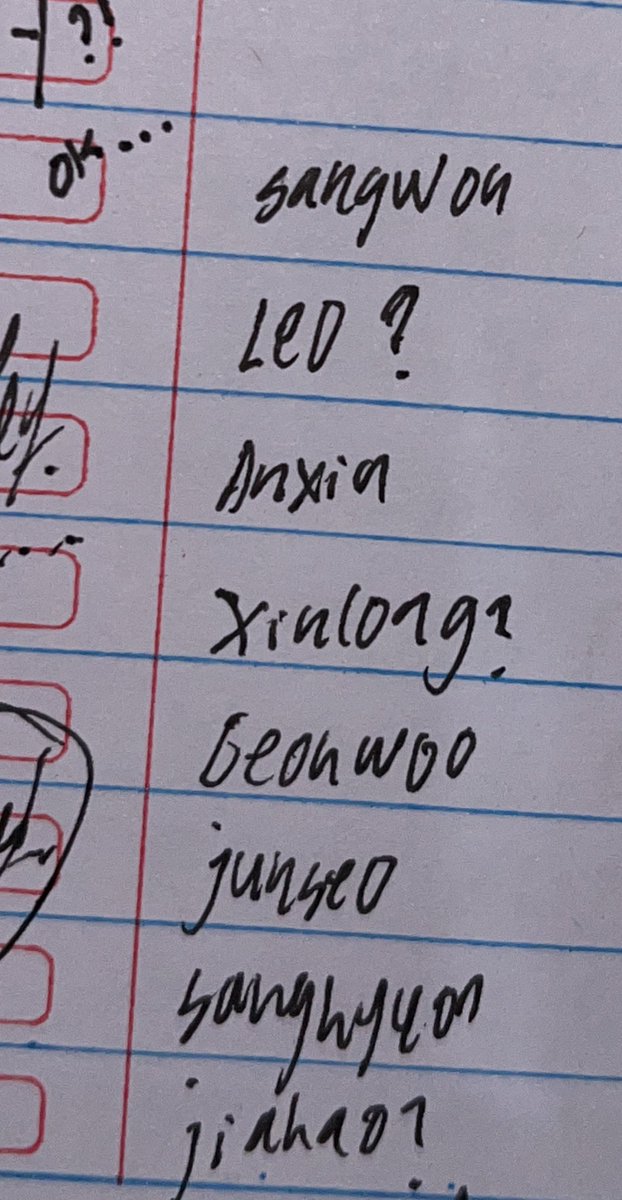 ?
OK...
sangwon
Leo ?
Anxin
Xinlong?
Geonwoo
junseo
sanghyeon
jiahao?